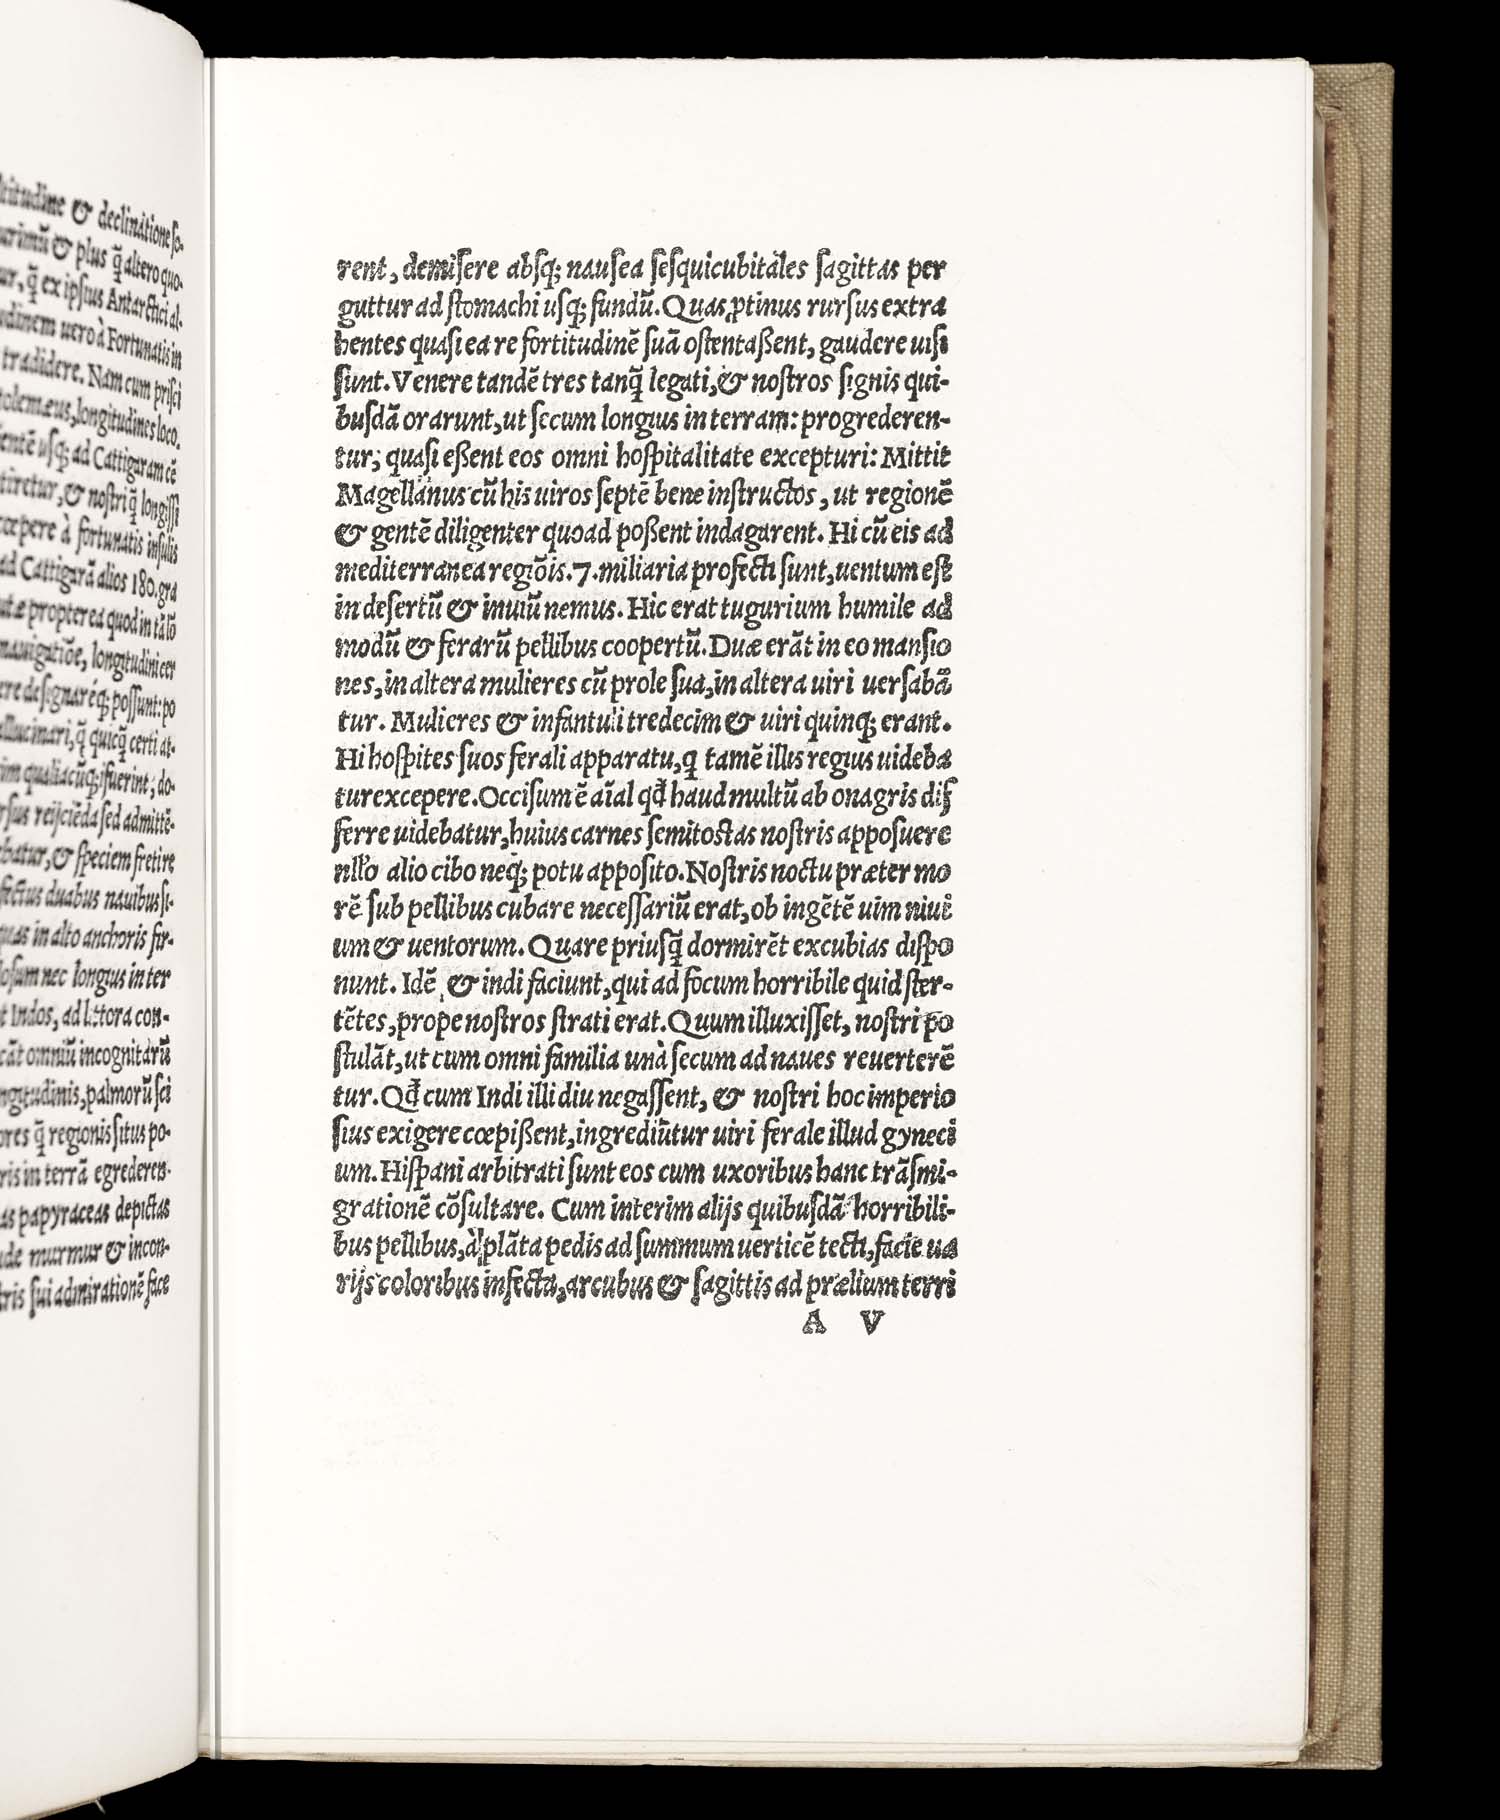 titudine & declinatione so-
urimũ & plus q̃ altero quo-
ur, q̃ ex ipsius Antarctici al-
udinem uero à Fortunatis in
tradidere. Nam cum prisci
olemæus, longitudines loco.
ientẽ usq; ad Cattigaram cẽ
tiretur, & nostriq̃ longissi
cœpere à fortunatis insulis
ad Cattigarã alios 180. gra
utæ propterea quod in tã lõ
nauigatiõe, longitudini cer
ere designaréq; possunt: po
ellucinari, q̃ quicq̃ certi at-
im qualiacũq; ifuerint; do-
rsus reijciẽda sed admittẽ-
ebatur, & speciem fretire
fectus duabus nauibus si-
quas in alto anchoris fir-
losum nec longius in ter
t Indos, ad littora con-
cãt omniũ incognitarũ
ngitudinis, palmorũ sci
ores q̃ regionis situs po-
ris in terrã egrederen-
as papyraceas depictas
ude murmur & incon-
tris sui admirationẽ face
rent, demisere absq; nausea sesquicubitales sagittas per
guttur ad stomachi usq; fundũ. Quas ꝓtinus rursus extra
hentes quasi ea re fortitudinẽ suã ostentaßent, gaudere uisi
sunt. Venere tandẽ tres tanq̃ legati, & nostros signis qui-
busdã orarunt, ut secum longius in terram: progrederen-
tur; quasi eßent eos omni hospitalitate excepturi: Mittit
Magellanus cũ his uiros septẽ bene instructos, ut regionẽ
& gentẽ diligenter quoad poßent indagarent. Hi cũ eis ad
mediterranea regiõis .7. miliaria profecti sunt, uentum est
in desertũ & inuiũ nemus. Hic erat tugurium humile ad
modũ & ferarũ pellibus coopertũ. Duæ erãt in eo mansio
nes, in altera mulieres cũ prole sua, in altera uiri uersabã
tur. Mulieres & infantuli tredecim & uiri quinq; erant.
Hi hospites suos ferali apparatu, q tamẽ illis regius uideba
tur excepere. Occisum ẽ aĩal qđ haud multũ ab onagris dif
ferre uidebatur, huius carnes semitostas nostris apposuere
nllõ alio cibo neq; potu apposito. Nostris noctu præter mo
rẽ sub pellibus cubare necessariũ erat, ob ingẽtẽ uim niui
um & uentorum. Quare priusq̃ dormirẽt excubias dispo
nunt. Idẽ & indi faciunt, qui ad focum horribile quid ster-
tẽtes, prope nostros strati erat. Quum illuxisset, nostri po
stulãt, ut cum omni familia unà secum ad naues reuerterẽ
tur. Qđ cum Indi illi diu negassent, & nostri hoc imperio
sius exigere cœpißent, ingrediũtur uiri ferale illud gyneci
um. Hispani arbitrati sunt eos cum uxoribus hanc trãsmi-
grationẽ cõsultare. Cum interim alijs quibusdã horribili-
bus pellibus, à plãta pedis ad summum uerticẽ tecti, facie ua
rijs coloribus infecta, arcubus & sagittis ad prælium terri
A V